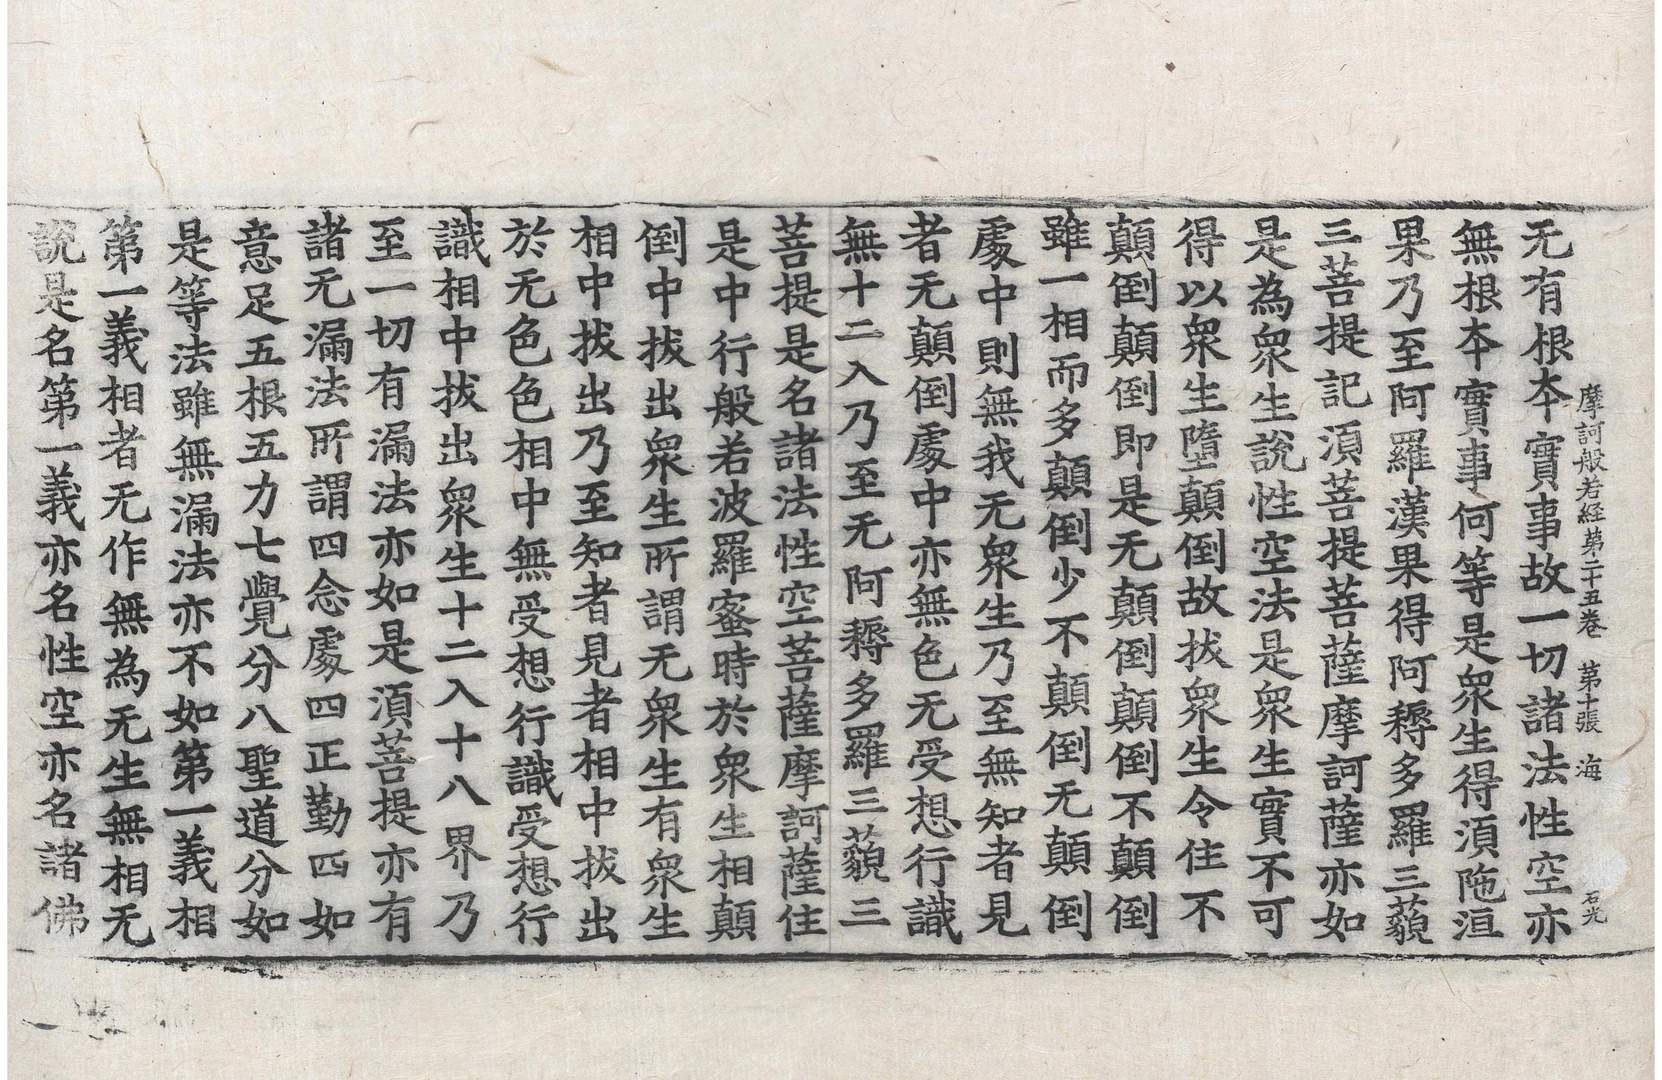 摩訶般若経第二十五巻　第十張　海　石光
无有根夲實事故一切諸法性空亦
無根夲實事何等是衆生得湏陁洹
果乃至阿羅漢果得阿耨多羅三藐
三菩提記湏菩提菩薩摩訶薩亦如
是為衆生說性空法是衆生實不可
得以衆生墮顛倒故拔衆生令住不
顛倒顛倒即是无顛倒顛倒不顛倒
雖一相而多顛倒少不顛倒无顛倒
處中則無我无衆生乃至無知者見
者无顛倒處中亦無色无受想行識
無十二入乃至无阿耨多羅三藐三
菩提是名諸法性空菩薩摩訶薩住
是中行般若波羅蜜時於衆生相顛
倒中拔出衆生所謂无衆生有衆生
相中拔出乃至知者見者相中拔出
於无色色相中無受想行識受想行
識相中拔出衆生十二入十八界乃
至一切有漏法亦如是湏菩提亦有
諸无漏法所謂四念處四正勤四如
意足五根五力七覺分八聖道分如
是等法雖無漏法亦不如第一義相
第一義相者无作無為无生無相无
說是名第一義亦名性空亦名諸佛